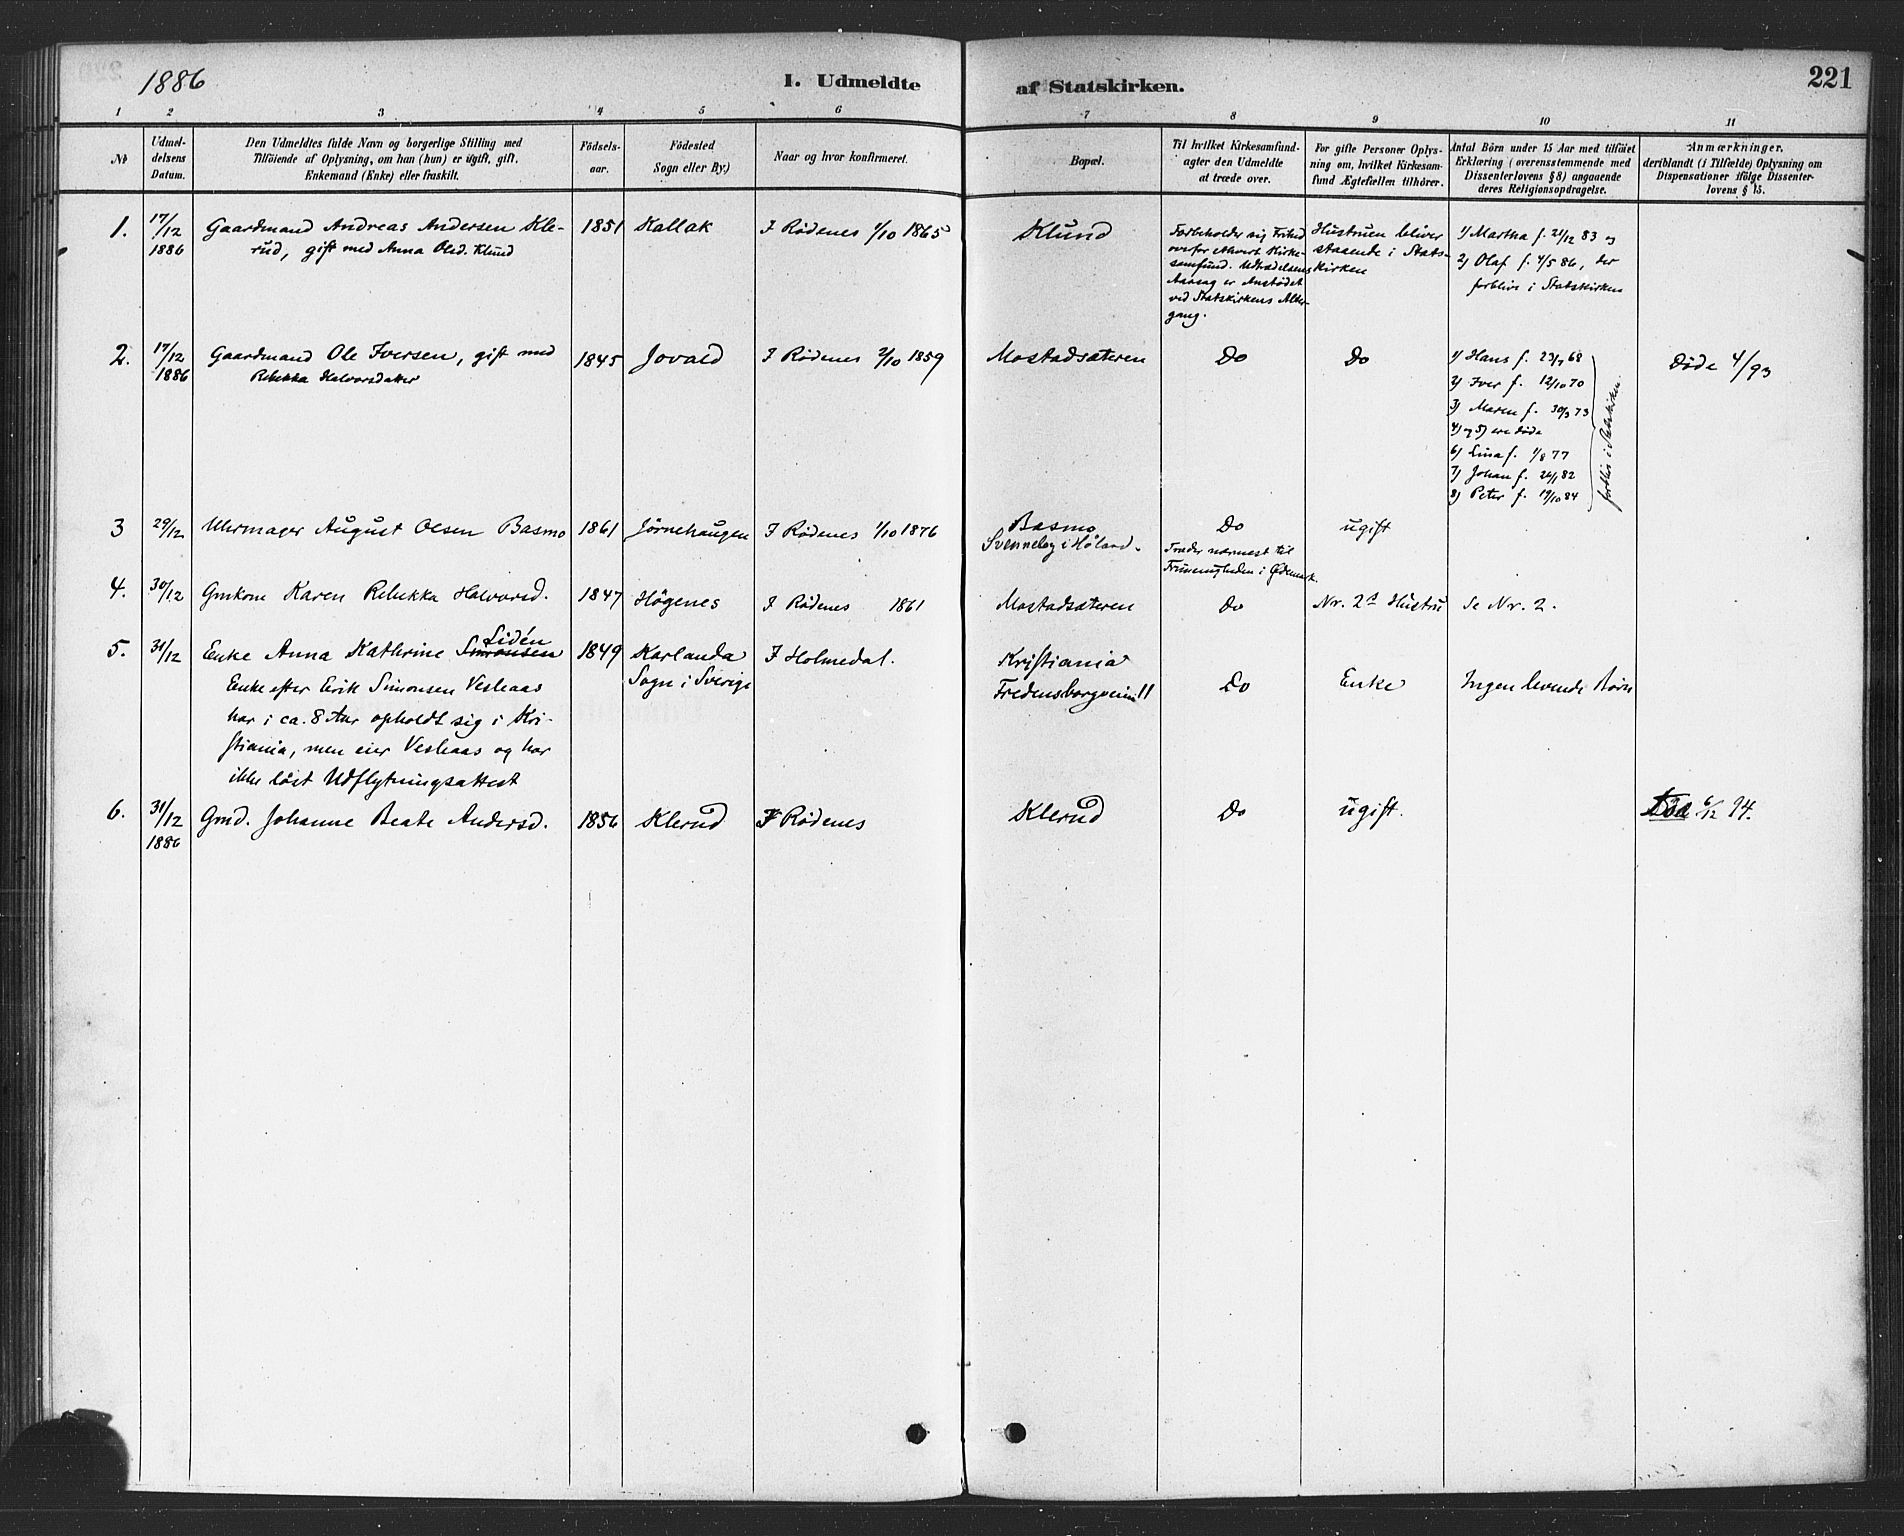 1886
I. Udmeldte af Statskirken.
221
1 2 3 4 5 6 7 8 9 10 11
№
Udmel-
delsens
Datum.
Den Udmeldtes fulde Navn og borgerlige Stilling med
Tilföiende af Oplysning, om han (hun) er ugift, gift.
Enkemand (Enke) eller fraskilt.
Födsels-
aar.
Födested
Sogn eller By.)
Naar og hvor konfirmeret.
Bopæl.
Til hvilket Kirkesamfund-
agter den Udmeldte
at træde over.
For gifte Personer Oplys-
ning om, hvilket Kirkesam-
fund Ægtefællen tilhörer.
Antal Börn under 15 Aar med tilföiet
Erklæring (overensstemmende med
Dissenterlovens § 8) angaaende
deres Religionsopdragelse.
Anmærkninger,
deriblandt (i Tilfælde) Oplysning om
Dispensationer ifölge Dissenter-
lovens § 15.
1.
17/12
1886
Gaardmand Andreas Andersen Kle-
rud, gift med Anna Olsd. Klund
1851
Kallak
I Rödenes 1/10 1865
Klund
Forbeholder sig Frihed
ovefor ethvert Kirke-
samfund. Udtrædelsens
Aarsag er Anstödet
ved Statskirkens Alter-
gang.
Hustruen bliver
staaende i Stats-
kirken
1) Martha f. 21/12 83 og
2) Olaf f. 4/5 86, der
forblive i Statskirken
2.
17/12
1886
Gaardmand Ole Iversen, gift med
Rebekka Halvorsdatter
1845
Jovald
I Rödenes 2/10 1859
Mostadsæteren
Do
Do
1) Hans f. 23/7 68
2) Iver f. 12/10 70
3) Maren f. 30/3 73
4) og 5) ere döde
6) Lina f. 1/8 77
7) Johan f. 24/1 82
8) Peter f. 19/10 84
forbliv i Statskirken.
Döde 4/93
3
29/12
Uhrmager August Olsen Basmo
1861
Jörnehaugen
I Rödenes 1/10 1876
Basmo
Svenneby i Höland.
Do
Træder nærmest til
Frimenigheden i Ødemark.
ugift
4.
30/12
Gmkone Karen Rebekka Halvorsd.
1847
Högenes
I Rödenes 1861
Mostadsæteren
Do
Nr. 2s Hustru
Se Nr. 2.
5.
31/12
Lidén
Enke Anna Kathrine Simonsen
Enke efter Erik Simonsen Vesleaas
har i ca. 8 Aar opholdt sig i Kri-
stiania, men eier Vesleaas og har
ikke löst Udflytningsattest
1849
Karlanda
Sogn i Sverige
I Holmedal.
Kristiania
Fredensborgveien 11
Do
Enke
Ingen levende Börn
6.
31/12
1886
Gmd. Johanne Beate Andersd.
1856
Klerud
I Rödenes
Klerud
Do
ugift.
Död 6/12 94.